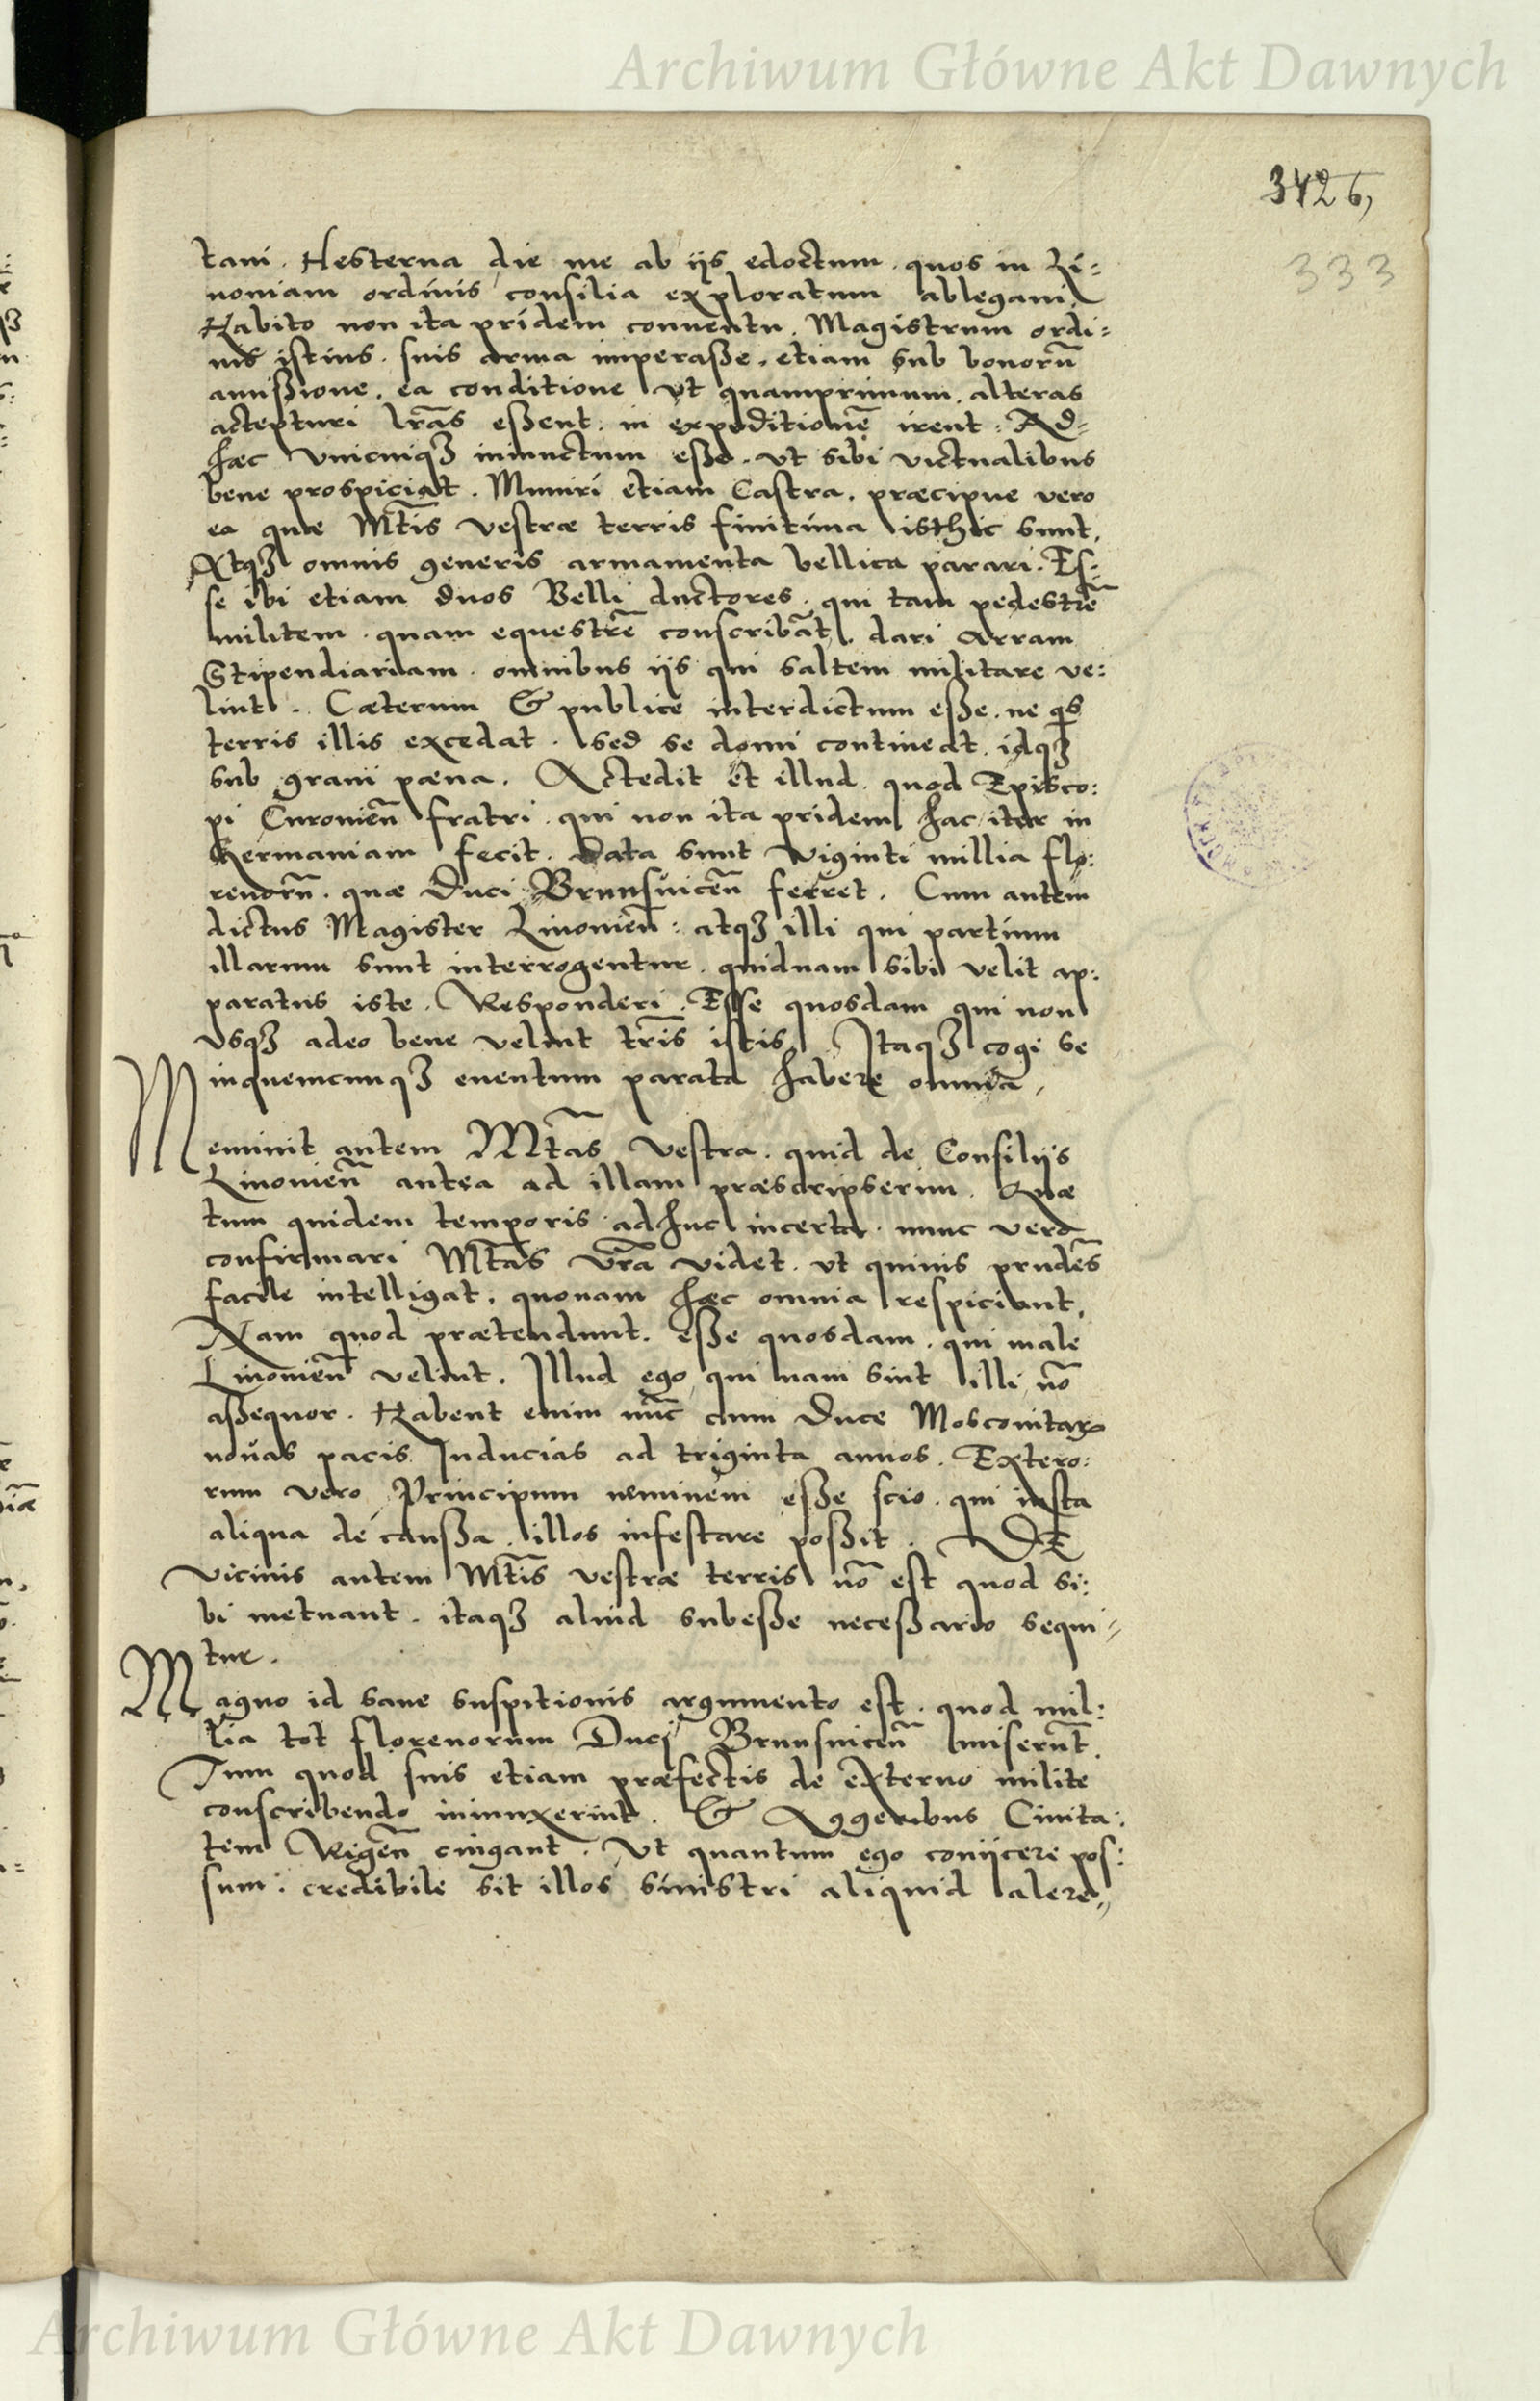 Archiwum Główne Akt Dawnych
3426,
333
tani. Hesterna die me ab iis edoctum. quos in Li=
uoniam ordinis consilia exploratum ablegaui.
Habito non ita pridem conuentu. Magistrum ordi=
nis istius. suis arma imperaße, etiam sub bonorũ
amißione, ea conditione vt quamprimum, alteras
accepturi lr̃as eßent. in expeditionẽ irent. Ad=
haec vnicuiqȝ iniunctum eße. vt sibi victualibus
bene prospiciat. Muniri etiam Castra. præcipue vero
ea quæ Mt̃is Vestræ terris finitima isthic sunt,
Atqȝ omnis generis armamenta bellica parari. Es=
se ibi etiam duos Belli ductores. qui tam pedestrẽ
militem. quam equestrẽ conscribãt. dari Arram
Stipendiariam. omnibus iis qui saltem militare ve:
lint. Cæterum & publice interdictum eße. ne qs
terris illis excedat. sed se domi contineat. idqȝ
sub graui pæna. Accedit et illud. quod Episco:
pi Curonieñ fratri. qui non ita pridem hac iter in
Germaniam fecit. Data sunt viginti millia flo:
renorũ. quæ Duci Brunsuiceñ ferret. Cum autem
dictus Magister Liuonieñ: atqȝ illi qui partium
illarum sunt interrogentur. quidnam sibi velit ap:
paratus iste. Responderi. Esse quosdam qui non
vsqȝ adeo bene velint tr̃is istis. Itaqȝ cogi se
inquemcunqȝ euentum parata habere omnia.
Meminit autem Mt̃as Vestra. quid de Consiliis
Liuonieñ antea ad illam præscripserim. Quæ
tum quidem temporis adhuc incerta. nunc vero
confirmari Mt̃as vr̃a videt. vt quiuis prudẽs
facile intelligat, quonam hæc omnia respiciant,
Nam quod prætendunt. eße quosdam. qui male
Liuonieñ velint. Illud ego qui nam sint illi nõ
aßequor. Habent enim nũc cum Duce Moscouitarꝝ
nouas pacis Inducias ad triginta annos. Extero:
rum vero Principum neminem eße scio. qui iusta
aliqua de caußa. illos infestare poßit. DE
vicinis autem Mt̃is vestræ terris nõ est quod si:
bi metuant. itaqȝ aliud subeße neceßario sequi=
tur.
Magno id sane suspitionis argumento est. quod mil:
lia tot florenorum Duci Brunsuiceñ miserũt.
Tum quod suis etiam præfectis de externo milite
conscribendo iniunxerint. & Aggeribus Ciuita:
tem Rigeñ cingant. Vt quantum ego coniicere pos:
sum: credibile sit illos sinistri aliquid alere,
Archiwum Główne Akt Dawnych